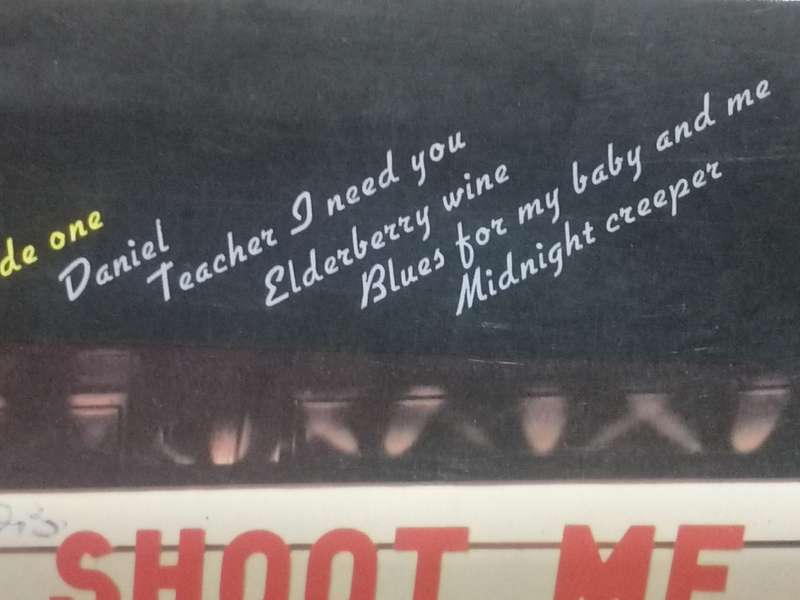 de one
Daniel
Teacher I need you
Elderberry wine
Blues for my baby and me
Midnight creeper
SHOOT ME